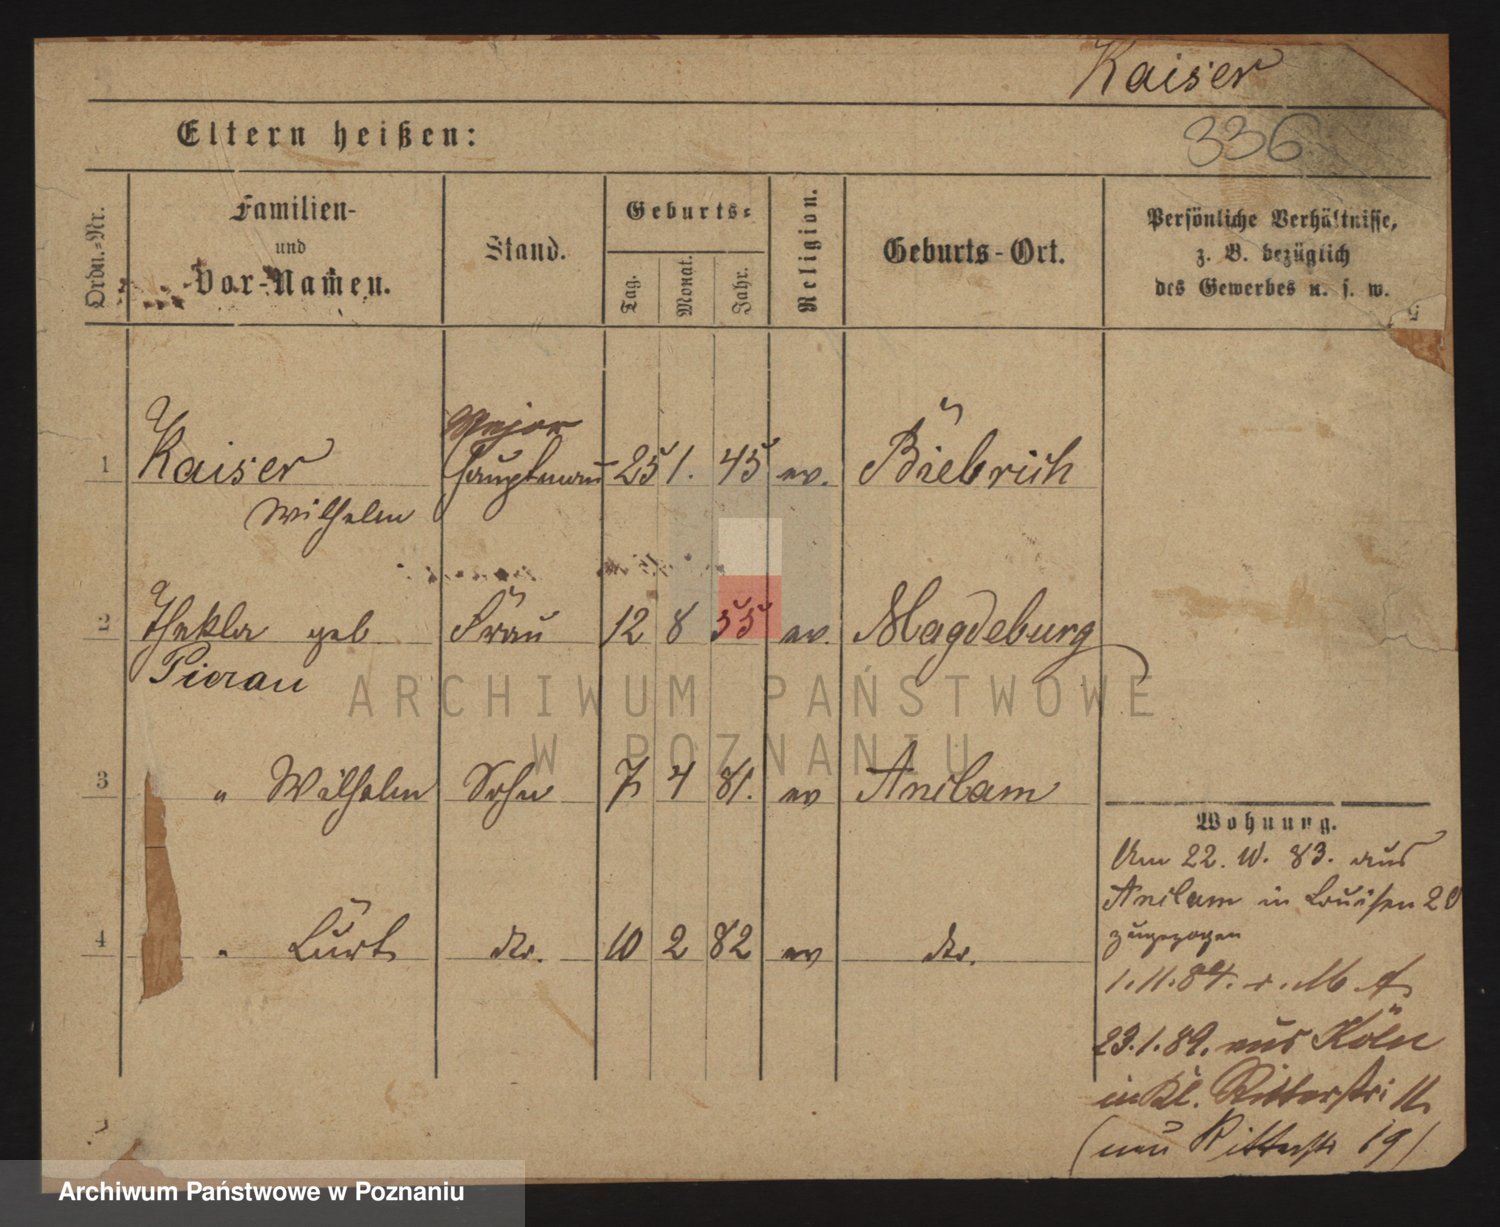 Kaiser
Eltern heißen:
336
Ordn.-Nr.
Familien-
und
Vor-Namen.
Stand.
Geburts-
Tag.
Monat.
Jahr.
Religion.
Geburts-Ort.
Persönliche Verhältnisse,
z. B. bezüglich
des Gewerbes u. s. w.
Major
1 Kaiser Hauptmann 25 1. 45 ev. Biebrich
Wilhelm
2 Thekla geb Frau 12 8 55 ev. Magdeburg
Pierau
3 " Wilhelm Sohn 7 4 81. ev Anclam
Wohnung.
Am 22. 10. 83. aus
Anclam in Louisen 20
zugezogen
4 " Curt do. 10 2 82 ev do.
1.11.84. M
23.1.89. aus Köln
in Kl. Ritterstr. 11
(neu Ritterstr 19)
ARCHIWUM PAŃSTWOWE
W POZNANIU
Archiwum Państwowe w Poznaniu